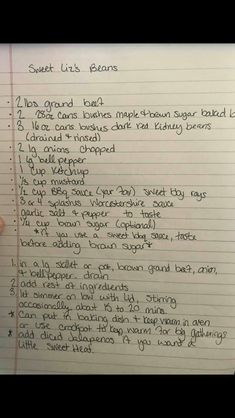 Sweet Liz's Beans
· 2 lbs ground beef
· 2 28oz cans bushes maple & brown sugar baked b
· 3 16oz cans bushus dark red kidney beans
(drained & rinsed)
· 2 lg onions chopped
· 1 lg bell pepper
· 1 cup Ketchup
· 1/3 cup mustard
· 1/2 cup BBQ sauce (your fav) sweet bay rays
· 3 or 4 splashes Worcestershire sauce
· garlic salt & pepper to taste
· 1/4 cup brown sugar (optional)
*if you use a sweet bbq sauce, taste
before adding brown sugar*
1. in a lg skillet or pot, brown ground beef, onion,
& bell pepper. drain
2. add rest of ingredients
3. let simmer on low with lid, stirring
occasionally about 15 to 20 mins.
* Can put in baking dish & keep warm in oven
or use crockpot to keep warm for big gatherings
* add diced Jalapenos if you want a
little sweet heat.